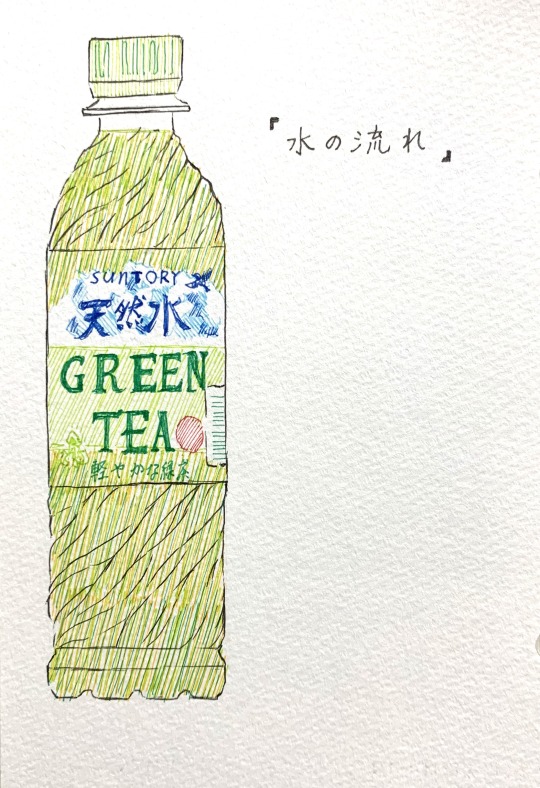 『水の流れ』
SUNTORY
天然水
GREEN
TEA
軽やかな緑茶